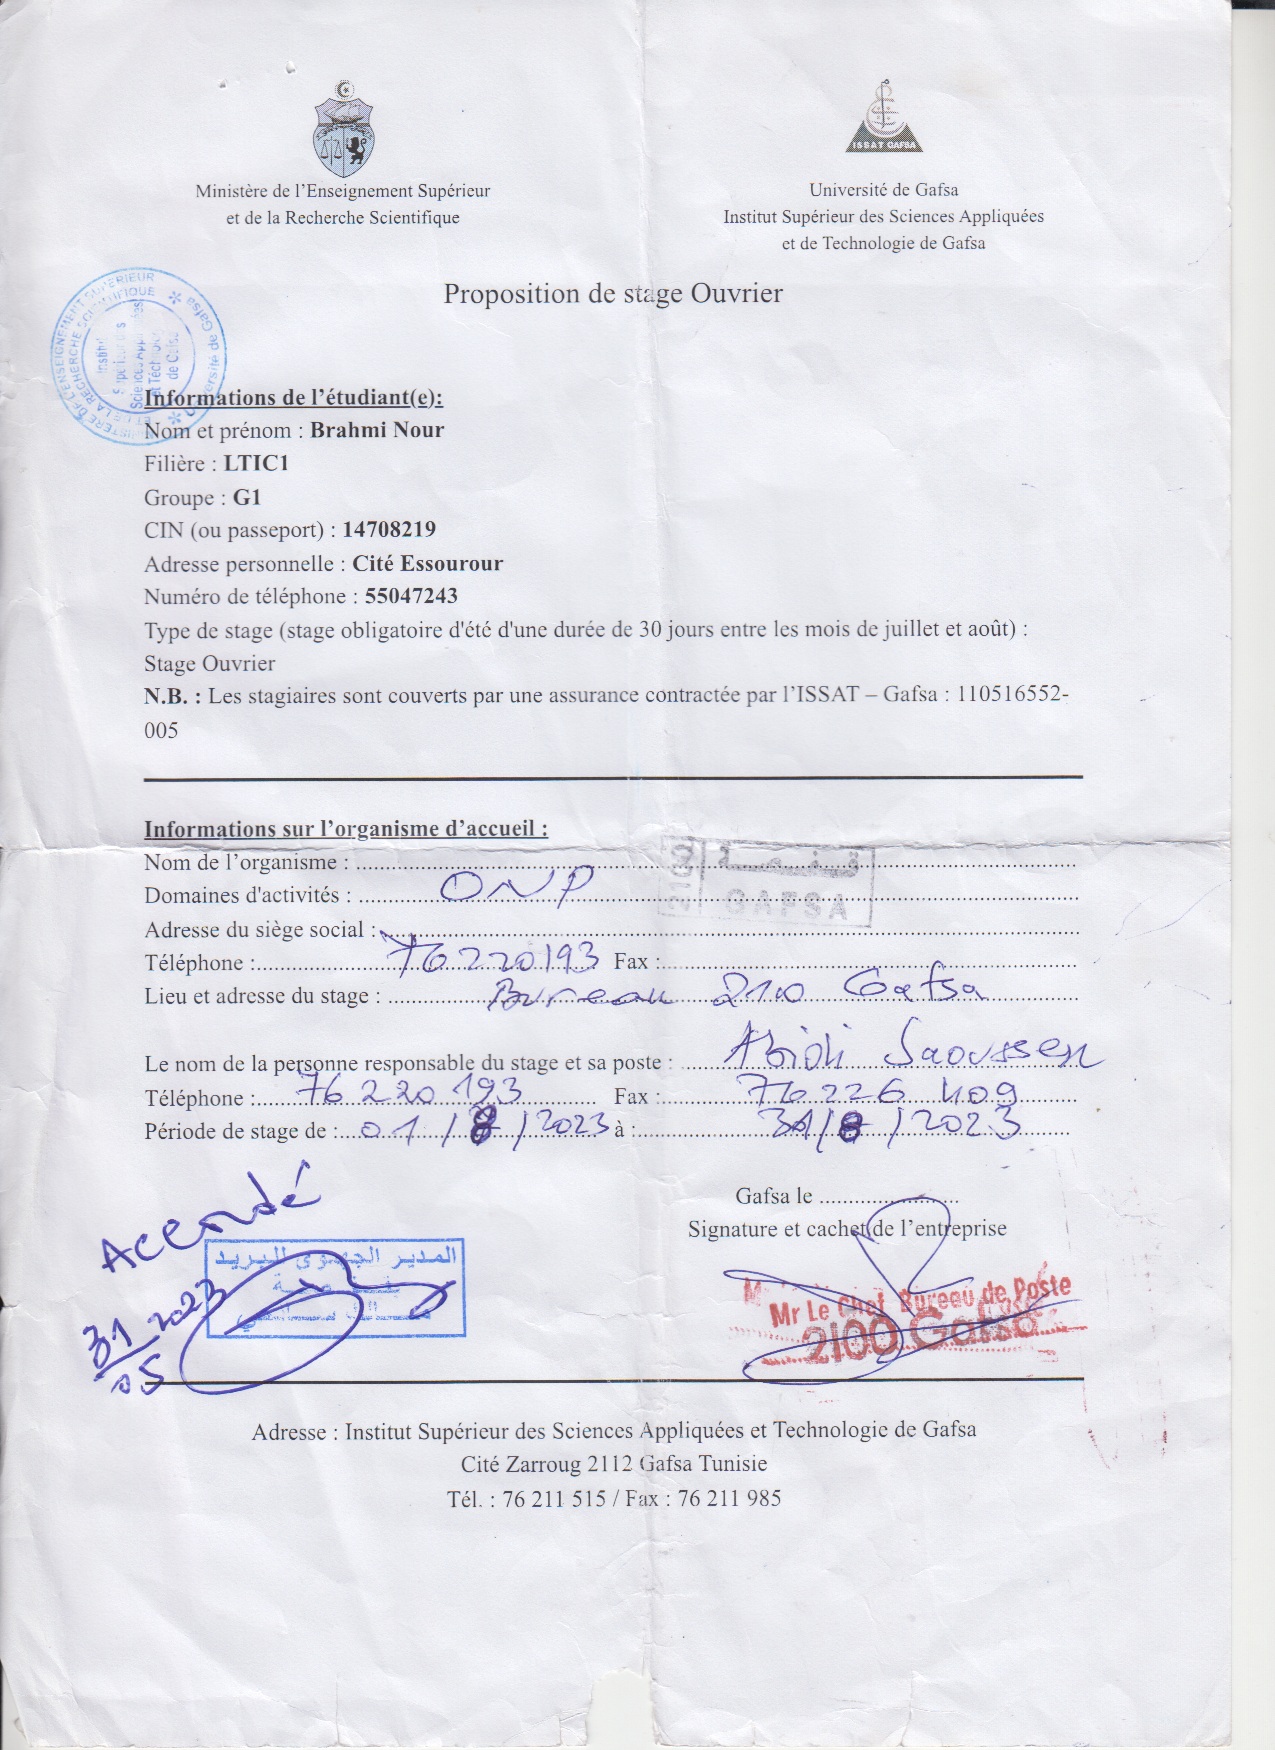 ISSAT GAFSA
Ministère de l'Enseignement Supérieur
et de la Recherche Scientifique
Université de Gafsa
Institut Supérieur des Sciences Appliquées
et de Technologie de Gafsa
Proposition de stage Ouvrier
Informations de l'étudiant(e):
Nom et prénom : Brahmi Nour
Filière : LTIC1
Groupe : G1
CIN (ou passeport) : 14708219
Adresse personnelle : Cité Essourour
Numéro de téléphone : 55047243
Type de stage (stage obligatoire d'été d'une durée de 30 jours entre les mois de juillet et août) :
Stage Ouvrier
N.B. : Les stagiaires sont couverts par une assurance contractée par l'ISSAT – Gafsa : 110516552-
005
Informations sur l'organisme d'accueil :
Nom de l'organisme :
2100 قفصة
GAFSA
Domaines d'activités : ONP
Adresse du siège social :
Téléphone : 76220193 Fax :
Lieu et adresse du stage : Bureau 2100 Gafsa
Le nom de la personne responsable du stage et sa poste : Abidi Saoussen
Téléphone : 76 220 193 Fax : 76226 409
Période de stage de : 01/8/2023 à : 31/8/2023
Accordé
Gafsa le
Signature et cachet de l'entreprise
المدير الجهوي للبريد
بقفصة
31 2023
05
Mr Le Chef Bureau de Poste
2100 Gafsa
Adresse : Institut Supérieur des Sciences Appliquées et Technologie de Gafsa
Cité Zarroug 2112 Gafsa Tunisie
Tél. : 76 211 515 / Fax : 76 211 985